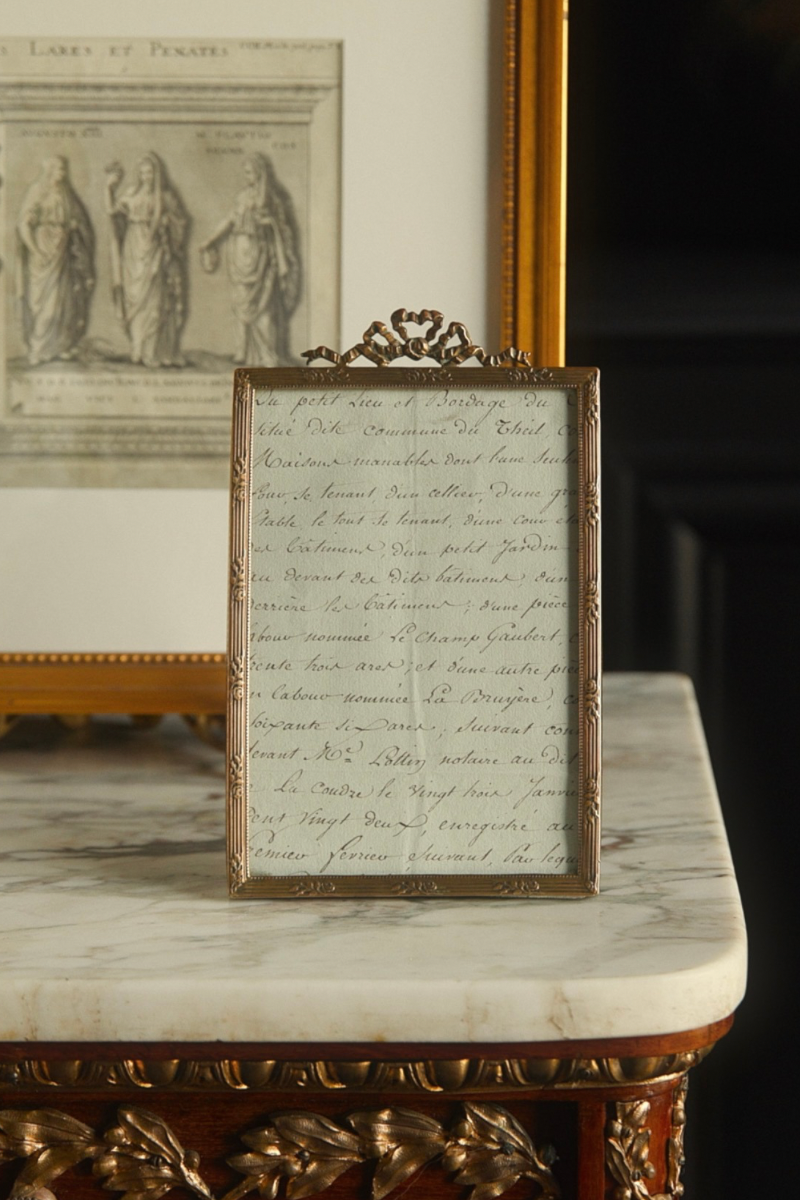 LARES ET PENATES
Du petit Lieu et Bordage du
situé dite commune du Theil, C
Maisons manables dont l'une seul
four, se tenant, d'un cellier, d'une gra
Etable, le tout se tenant, d'une cour et
des bâtiments, d'un petit Jardin
au devant des dits batiments, d'un
derrière les bâtiments; d'une pièce
labour nommée Le Champ Gaubert,
trente trois ares; et d'une autre piè
en labour nommée La Bruyère, c
soixante six ares; suivant con
devant Me notaire au dit
La Coudre le vingt trois Janvi
cent vingt deux, enregistré au
remier fevrier suivant, Par leque